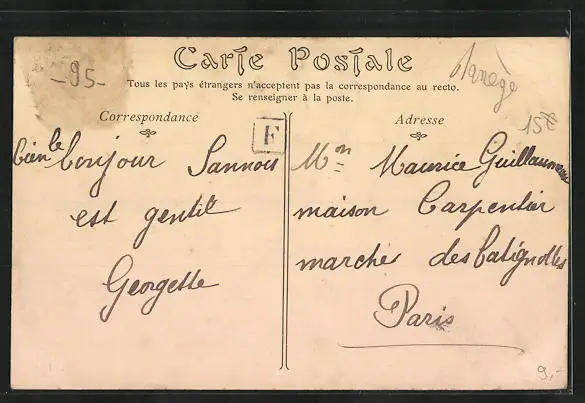 -95-
Carte Postale
Tous les pays étrangers n'acceptent pas la correspondance au recto.
Se renseigner à la poste.
Correspondance
Adresse
F
15
bien le bonjour Sannois
est gentil
Georgette
Mon Maurice Guillaumeau
maison Carpentier
marché des batignolles
Paris
9,-